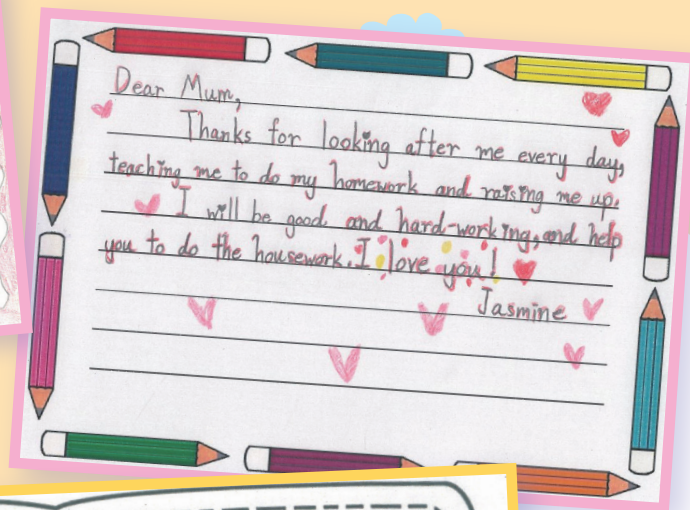 Dear Mum,
Thanks for looking after me every day,
teaching me to do my homework and raising me up.
I will be good and hard-working, and help
you to do the housework. I love you!
Jasmine